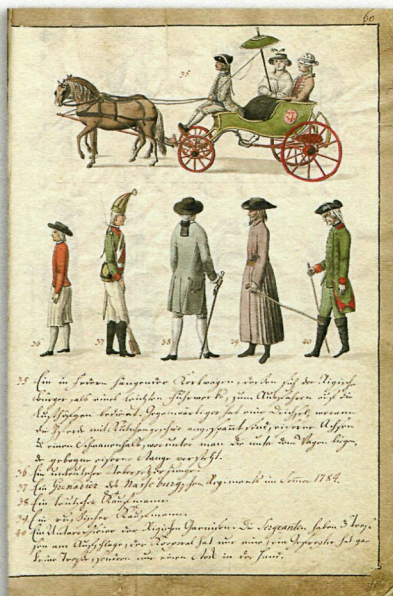 60
35
36 37 38 39 40
35 Ein in Federn hängender Korbwagen, dessen sich der Rigische
Bürger, als eines leichten Fuhrwerks, zum Ausfahren auf die
Lusthöfgen bedient. Gegenwärtiger hat eine Deichsel, woran
die Pferde mit Kutschengeschirr angespannt sind, eiserne Achsen
und einen Schwanenhals, worunter man die unter dem Wagen
gebogne eiserne Stange versteht.
36 Ein undeutscher
37 Ein Grenadier des Naschburgschen Regiments im Sommer 1784.
38 Ein teutscher Kaufmann.
39 Ein russischer Kaufmann.
40 Ein Unterofficier der Rigischen Garnison. die Sergeanten haben 3 Tres-
sen am Aufschlage, der Korporal hat nur eine, ein Gefreyter hat gar
keine Tresse, sondern nur einen Stock in der Hand.